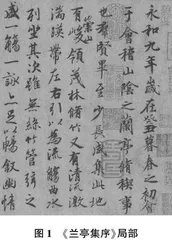 永和九年歲在癸丑暮春之初會
于會稽山陰之蘭亭脩稧事
也羣賢畢至少長咸集此地
有崇山峻領茂林脩竹又有清流激
湍暎帶左右引以為流觴曲水
列坐其次雖無絲竹管弦之
盛一觴一詠亦足以暢敘幽情
图 1 《兰亭集序》局部